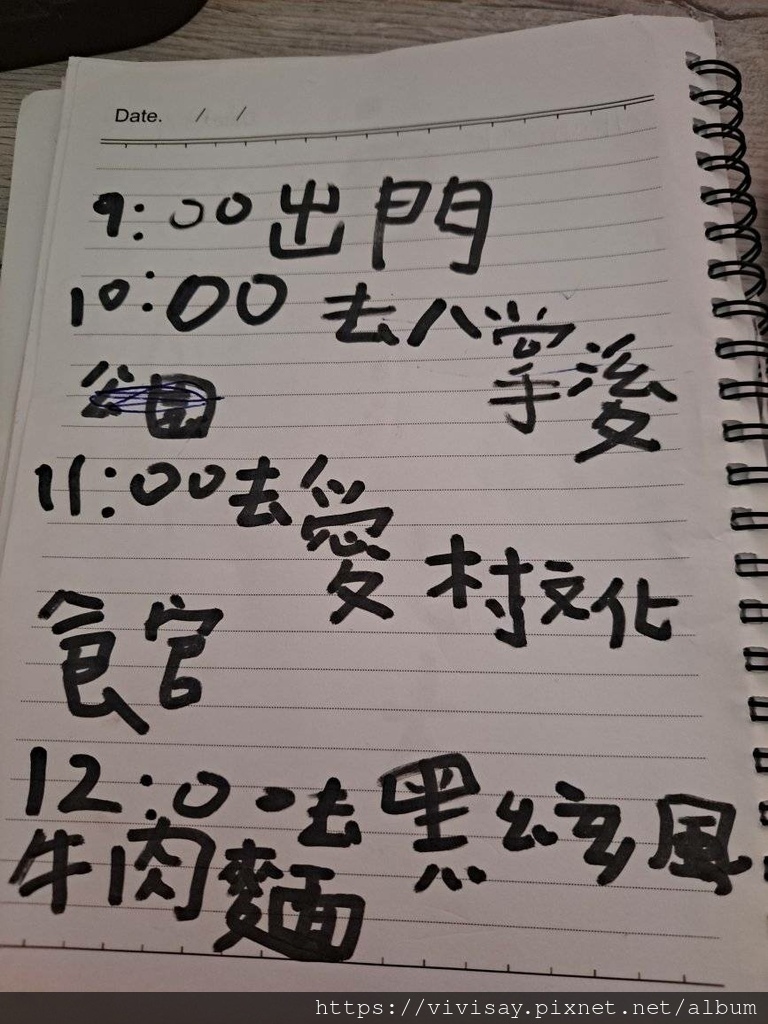 Date. / /
9:00出門
10:00 去八掌後
公園
11:00去愛村文化
館
12:00去黑絃風
牛肉麵
https://vivisay.pixnet.net/album